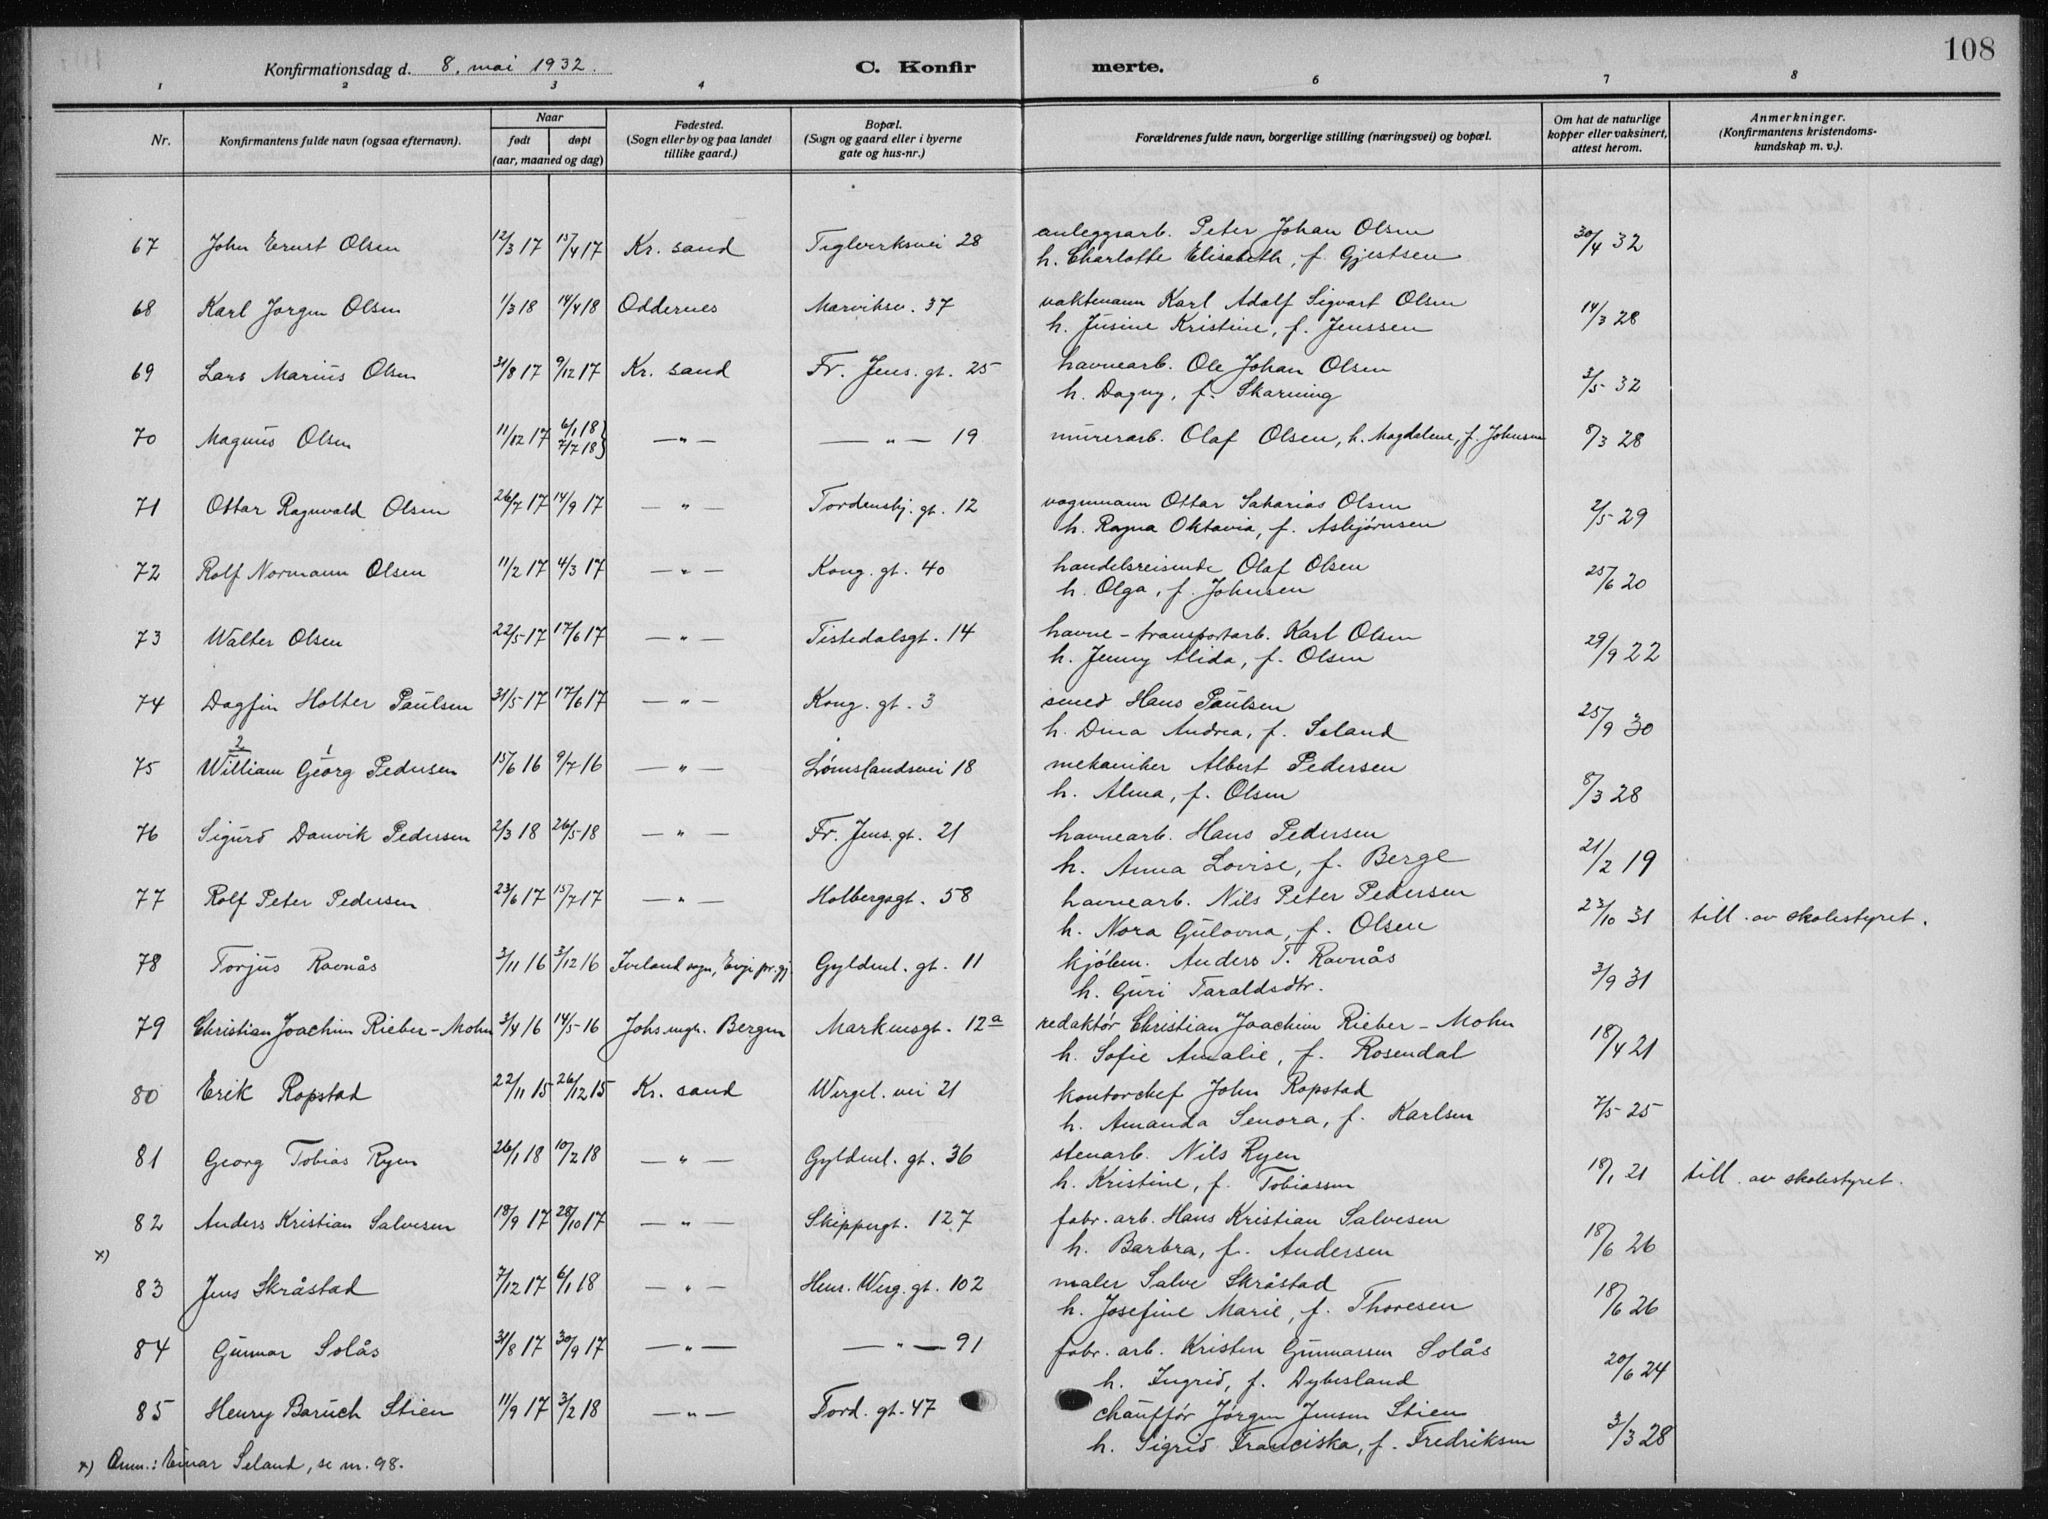 108
Konfirmationsdag d. 8. mai 1932. C. Konfirmerte.
1 2 3 4 5 6 7 8
Nr. Konfirmantens fulde navn (ogsaa efternavn). Naar født døpt (aar, maaned og dag) Fødested. (Sogn eller by og paa landet tillike gaard.) Bopæl. (Sogn og gaard eller i byerne gate og hus-nr.) Forældrenes fulde navn, borgerlige stilling (næringsvei) og bopæl. Om hat de naturlige kopper eller vaksinert, attest herom. Anmerkninger. (Konfirmantens kristendomskundskap m. v.).
67 John Ernst Olsen 12/3 17 15/4 17 Kr. sand Teglverksvei 28 anleggsarb. Peter Johan Olsen 30/4 32
h. Charlotte Elisabeth, f. Gjertsen
68 Karl Jørgen Olsen 1/3 18 14/4 18 Oddernes Marviksv. 37 vaktmann Karl Adolf Sigvart Olsen 14/3 28
h. Jusine Kristine, f. Jenssen
69 Lars Marius Olsen 31/8 17 9/12 17 Kr. sand Fr. Jens. gt. 25 havnearb. Ole Johan Olsen 3/5 32
h. Dagny, f. Skarning
70 Magnus Olsen 11/12 17 6/1 18 7/7 18} —"— —"— 19 murerarb. Olaf Olsen, h. Magdalene, f. Johnsen 8/3 28
71 Ottar Ragnvald Olsen 26/7 17 14/9 17 —"— Tordenskj. gt. 12 vognmann Ottar Sakarias Olsen 2/5 29
h. Ragna Oktavia, f. Asbjørnsen
72 Rolf Normann Olsen 11/2 17 4/3 17 —"— Kong. gt. 40 handelsreisende Olaf Olsen 25/6 20
h. Olga, f. Johnsen
73 Walter Olsen 22/5 17 17/6 17 —"— Tistedalsgt. 14 havne-transportarb. Karl Olsen 29/9 22
h. Jenny Alida, f. Olsen
74 Dagfin Holter Paulsen 31/5 17 17/6 17 —"— Kong. gt. 3 smed Hans Paulsen 25/9 30
h. Dina Andrea, f. Seland
2 1
75 William Georg Pedersen 15/6 16 9/7 16 —"— Lømslandsvei 18 mekaniker Albert Pedersen 8/3 28
h. Alma, f. Olsen
76 Sigurd Danvik Pedersen 2/3 18 26/5 18 —"— Fr. Jens. gt. 21 havnearb. Hans Pedersen 21/2 19
h. Anna Lovise, f. Berge
77 Rolf Peter Pedersen 23/6 17 15/7 17 —"— Holbergsgt. 58 havnearb. Nils Peter Pedersen 23/10 31 till. av skolestyret.
h. Nora Gulovna, f. Olsen
78 Torjus Ravnås 3/11 16 3/12 16 Iveland sogn, Evje pr.gj. Gyldenl. gt. 11 kjøbm. Anders T. Ravnås 3/9 31
h. Guri Taraldsdtr.
79 Christian Joachim Rieber-Mohn 3/4 16 14/5 16 Johs. mgh. Bergen Markensgt. 12a redaktør Christian Joachim Rieber-Mohn 18/4 21
h. Sofie Amalie, f. Rosendal
80 Erik Ropstad 22/11 15 26/12 15 Kr. sand Wergel. vei 21 kontorchef John Ropstad 7/5 25
h. Amanda Senora, f. Karlsen
81 Georg Tobias Ryen 26/1 18 10/2 18 —"— Gyldenl. gt. 36 stenarb. Nils Ryen 18/1 21 till. av skolestyret.
h. Kristine, f. Tobiassen
82 Anders Kristian Salvesen 18/9 17 28/10 17 —"— Skippergt. 127 fabr. arb. Hans Kristian Salvesen 18/6 26
h. Barbra, f. Andersen
x)
83 Jens Skråstad 7/12 17 6/1 18 —"— Henr. Werg. gt. 102 maler Salve Skråstad 18/6 26
h. Josefine Marie, f. Thoresen
84 Gunnar Solås 31/8 17 30/9 17 —"— —"— 91 fabr. arb. Kristen Gunnarsen Solås 20/6 24
h. Ingrid, f. Dybesland
85 Henry Baruch Stien 11/9 17 3/2 18 —"— Tord. gt. 47 chauffør Jørgen Jensen Stien 3/3 28
h. Sigrid Franciska, f. Fredriksen
x) Anm.: Einar Seland, se nr. 98.